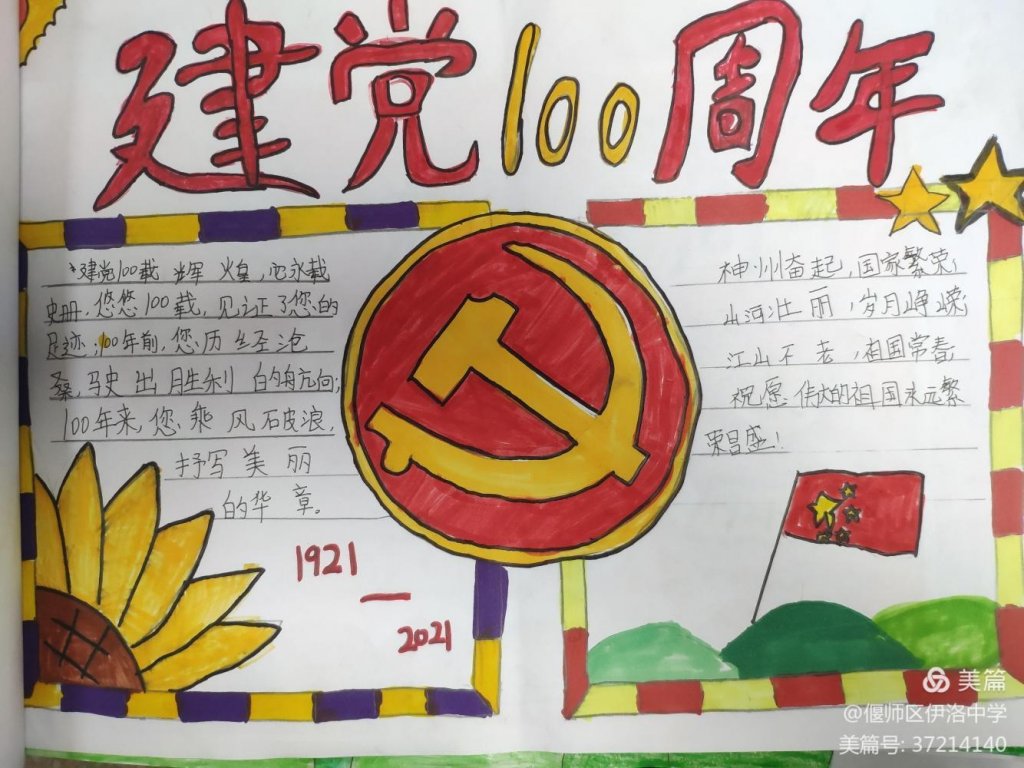 建党100周年
建党100载 辉 煌，永载
史册，悠悠100载，见证了您的
足迹；100年前，您历经沧
桑，驶出胜利的航向；
100年来，您乘风破浪，
抒写美丽
的华章。
1921
—
2021
神州奋起，国家繁荣；
山河壮丽，岁月峥嵘；
江山不老，祖国常春，
祝愿伟大的祖国永远繁
荣昌盛！
美篇
@偃师区伊洛中学
美篇号: 37214140